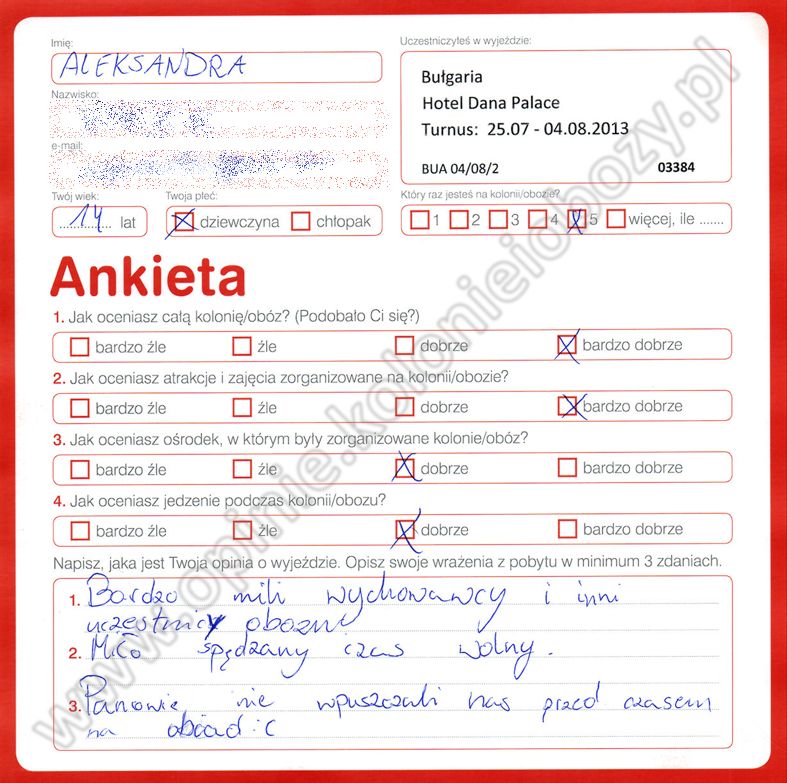 Imię:
ALEKSANDRA
Nazwisko:
e-mail:
Twój wiek:
14 lat
Twoja płeć:
dziewczyna chłopak
Uczestniczyłeś w wyjeździe:
Bułgaria
Hotel Dana Palace
Turnus: 25.07 - 04.08.2013
BUA 04/08/2 03384
Który raz jesteś na kolonii/obozie?
1 2 3 4 5 więcej, ile .......
Ankieta
1. Jak oceniasz całą kolonię/obóz? (Podobało Ci się?)
bardzo źle źle dobrze bardzo dobrze
2. Jak oceniasz atrakcje i zajęcia zorganizowane na kolonii/obozie?
bardzo źle źle dobrze bardzo dobrze
3. Jak oceniasz ośrodek, w którym były zorganizowane kolonie/obóz?
bardzo źle źle dobrze bardzo dobrze
4. Jak oceniasz jedzenie podczas kolonii/obozu?
bardzo źle źle dobrze bardzo dobrze
Napisz, jaka jest Twoja opinia o wyjeździe. Opisz swoje wrażenia z pobytu w minimum 3 zdaniach.
1. Bardzo mili wychowawcy i inni
uczestnicy obozu
2. Miło spędzany czas wolny.
3. Panowie nie wpuszczali nas przed czasem
na obiad :c
www.opinie.kolonieiobozy.pl